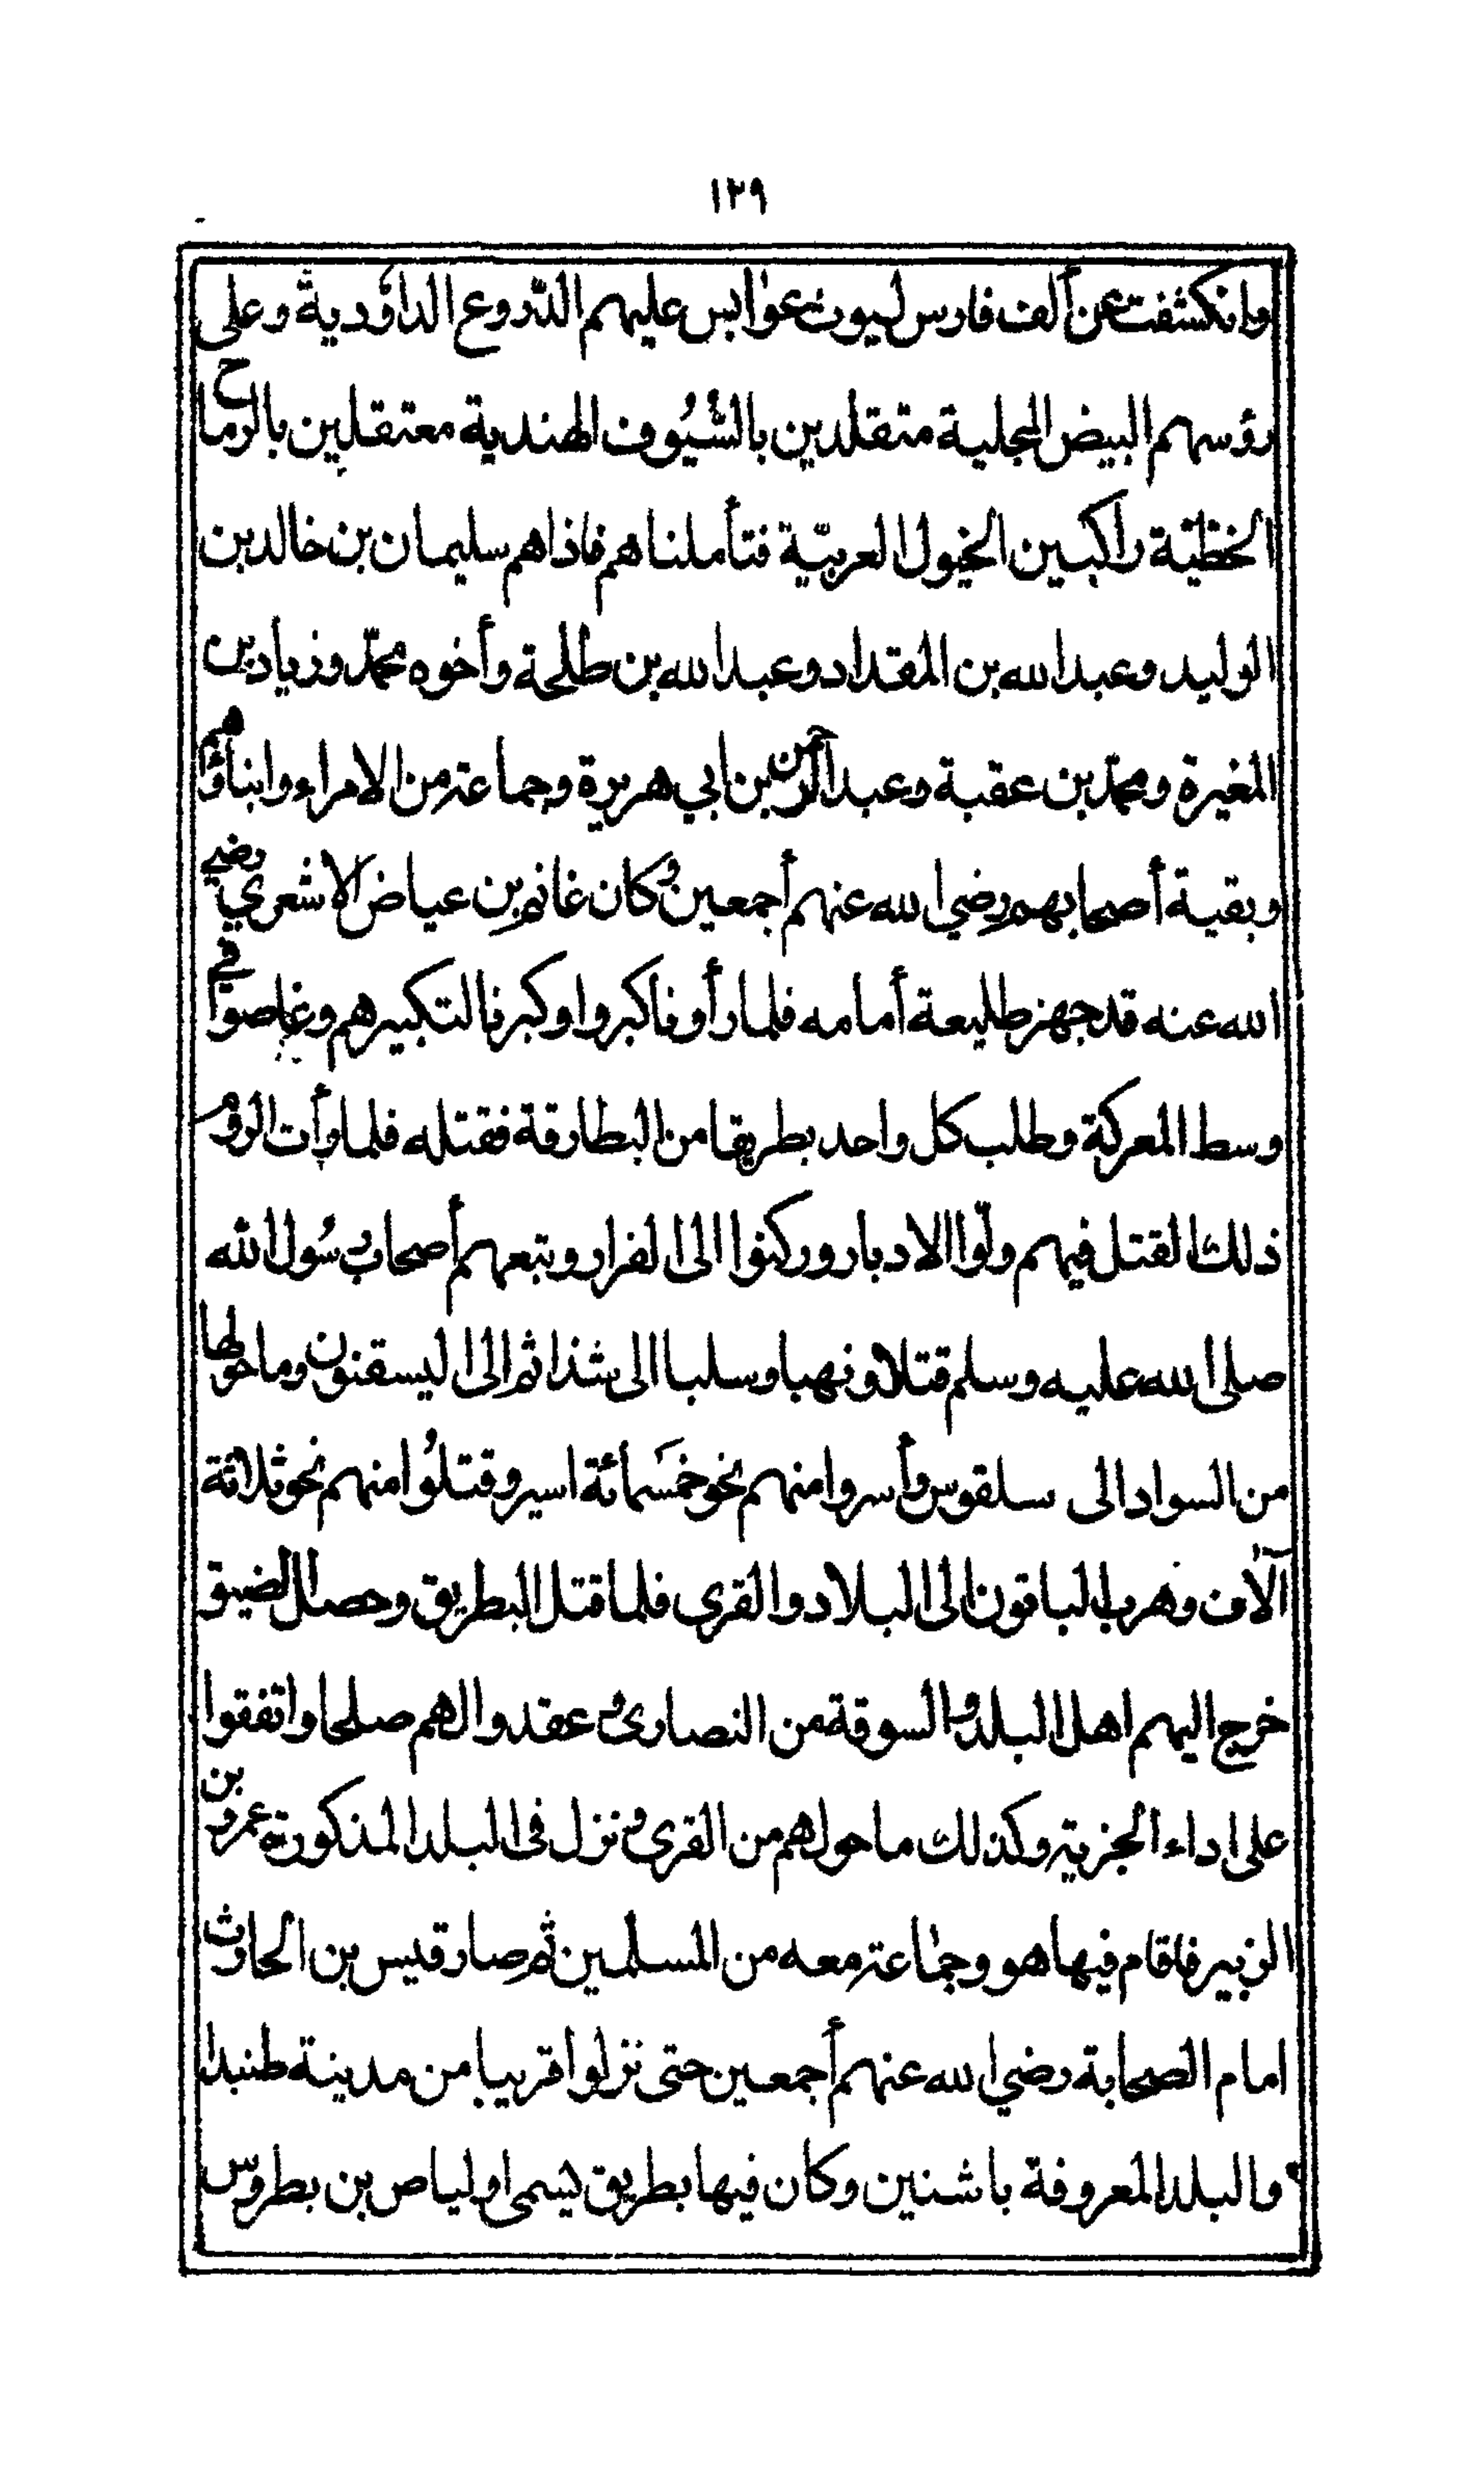 ١٢٩
وانكشفت عن ألف فارس ليوث عوابس عليهم الدّروع الداؤدية وعلى
رؤسهم البيض المجلية متقلدين بالسّيُوف الهندية معتقلين بالرماح
الخطّيّة راكبين الخيول العربيّة فتأملناهم فاذاهم سليمان بن خالد بن
الوليد وعبد الله بن المقداد وعبد الله بن طلحة وأخوه محمّد وزياد بن
المغيرة ومحمّد بن عقبة وعبد الرحمن بن ابي هريرة وجماعة من الامراء وابناؤهم
وبقية أصحابهم رضي الله عنهم أجمعين وكان غانم بن عياض الاشعري رضي
الله عنه قد جهز طليعة أمامه فلما رأونا كبروا وكبرنا لتكبيرهم وغاصوا في
وسط المعركة وطلب كل واحد بطريقا من البطارقة فقتله فلما رأت الروم
ذلك القتل فيهم ولّوا الادبار وركنوا الى الفرار وتبعهم أصحاب رسُول الله
صلى الله عليه وسلم قتلا ونهبا وسلبا الى شذا ثم الى اليسقنون وما حولها
من السواد الى سلقوس وأسروا منهم نحو خمسَمائة اسير وقتلُوا منهم نحو ثلاثة
آلاف وهرب الباقون الى البلاد والقرى فلما قتل البطريق وحصل الضيق
خرج اليهم اهل البلد والسوقة من النصارى وعقدوا لهم صلحا واتفقوا
على اداء الجزية وكذلك ما حولهم من القرى ونزل في البلد المذكورة عمرو بن
الزبير فاقام فيها هو وجماعة معه من المسلمين ثم صار قيس بن الحارث
امام الصحابة رضي الله عنهم أجمعين حتى نزلوا قريبا من مدينة طنبدا
والبلد المعروفة باشنين وكان فيها بطريق يسمى اولياص بن بطروس